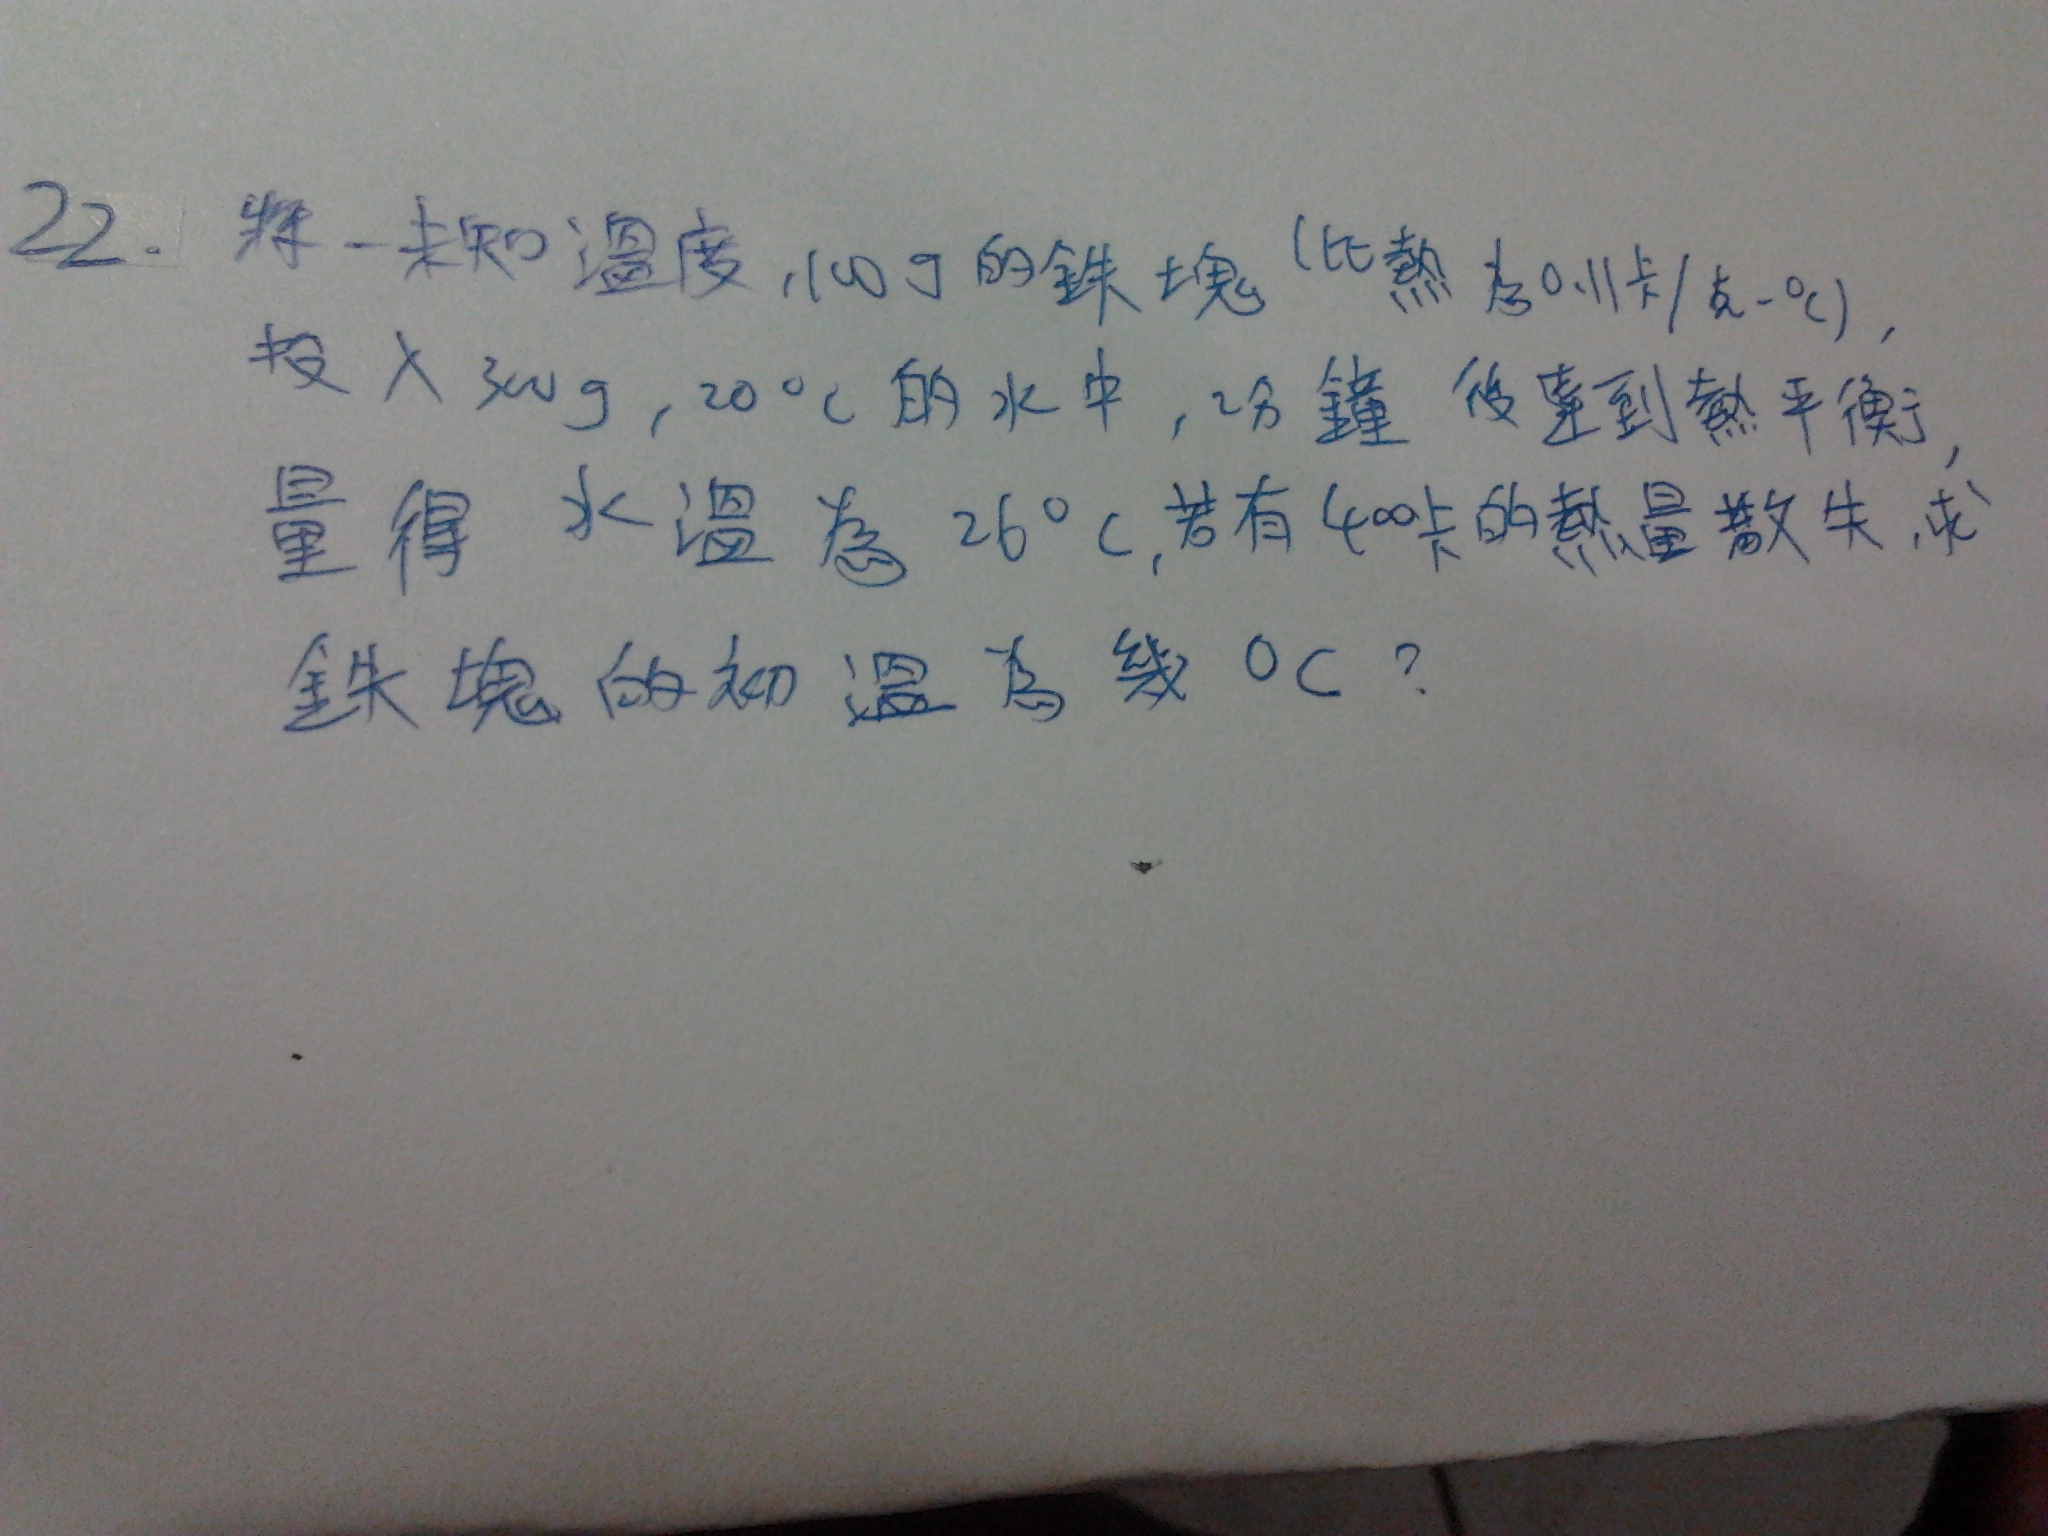 22. 將一未知溫度,100g的鉄塊(比熱為0.11卡/克-°C),
投入300g,20°C的水中,2分鐘後達到熱平衡,
量得水溫為26°C,若有400卡的熱量散失,求
鉄塊的初溫為幾°C?